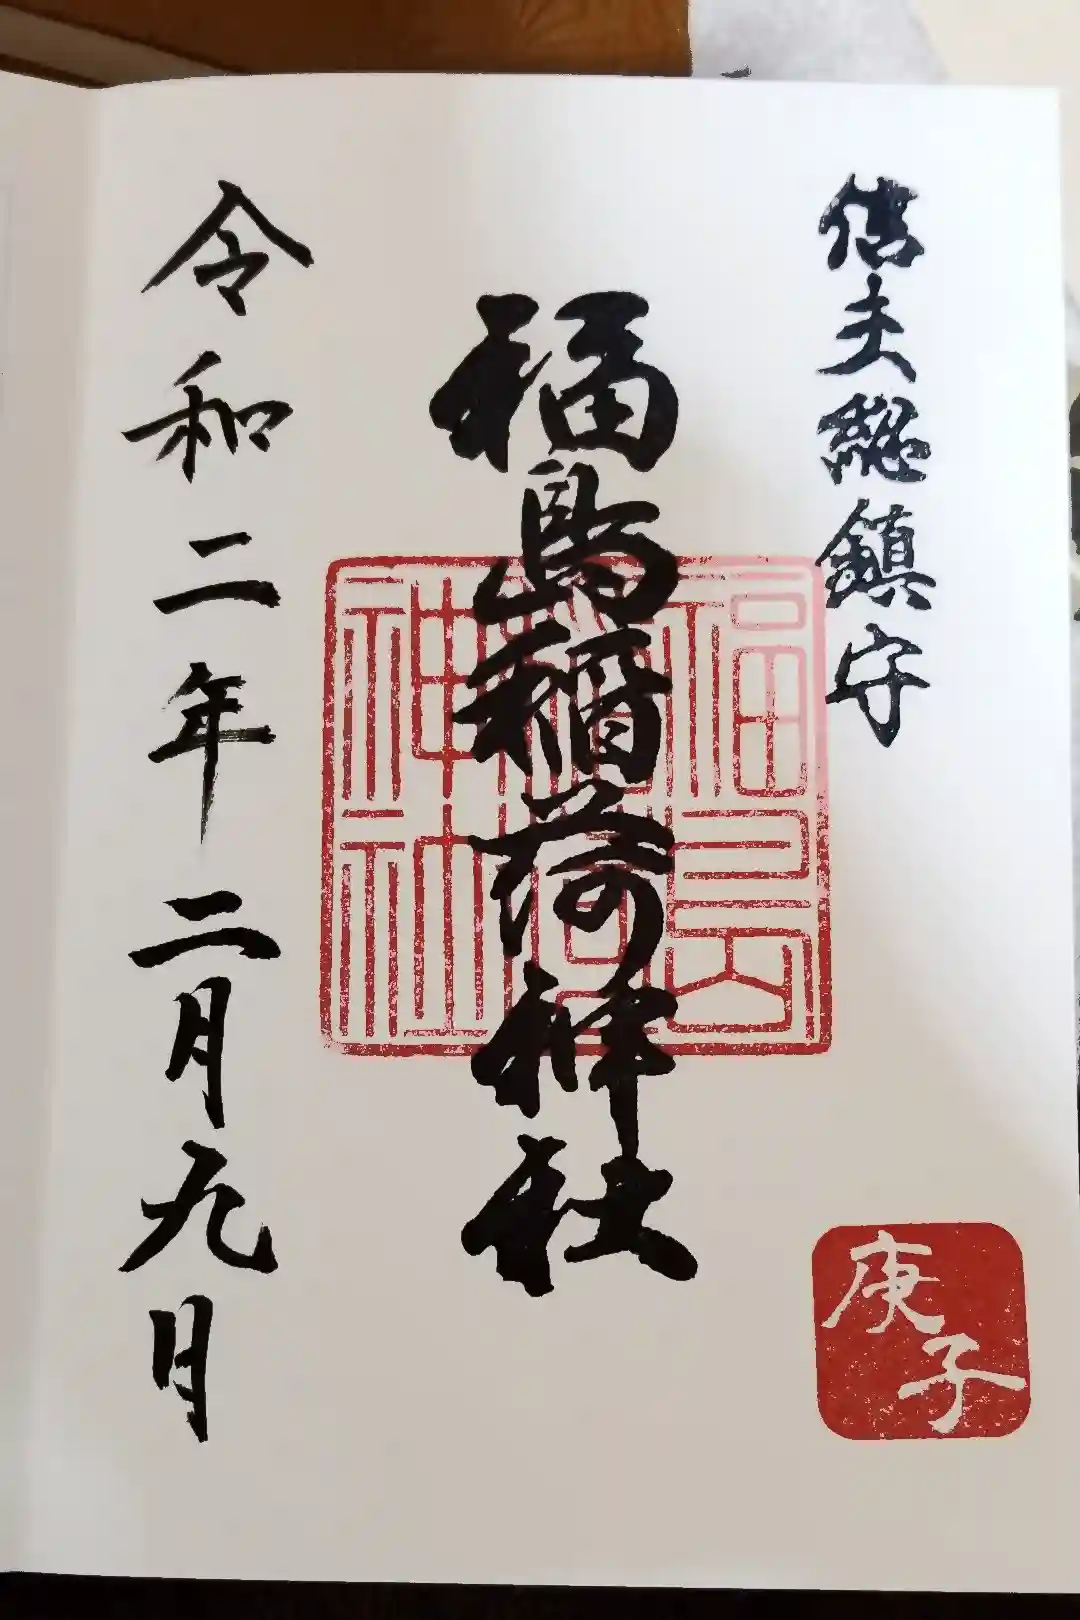 信夫総鎮守
福島稲荷神社
福島稲荷神社
令和二年二月九日
庚子